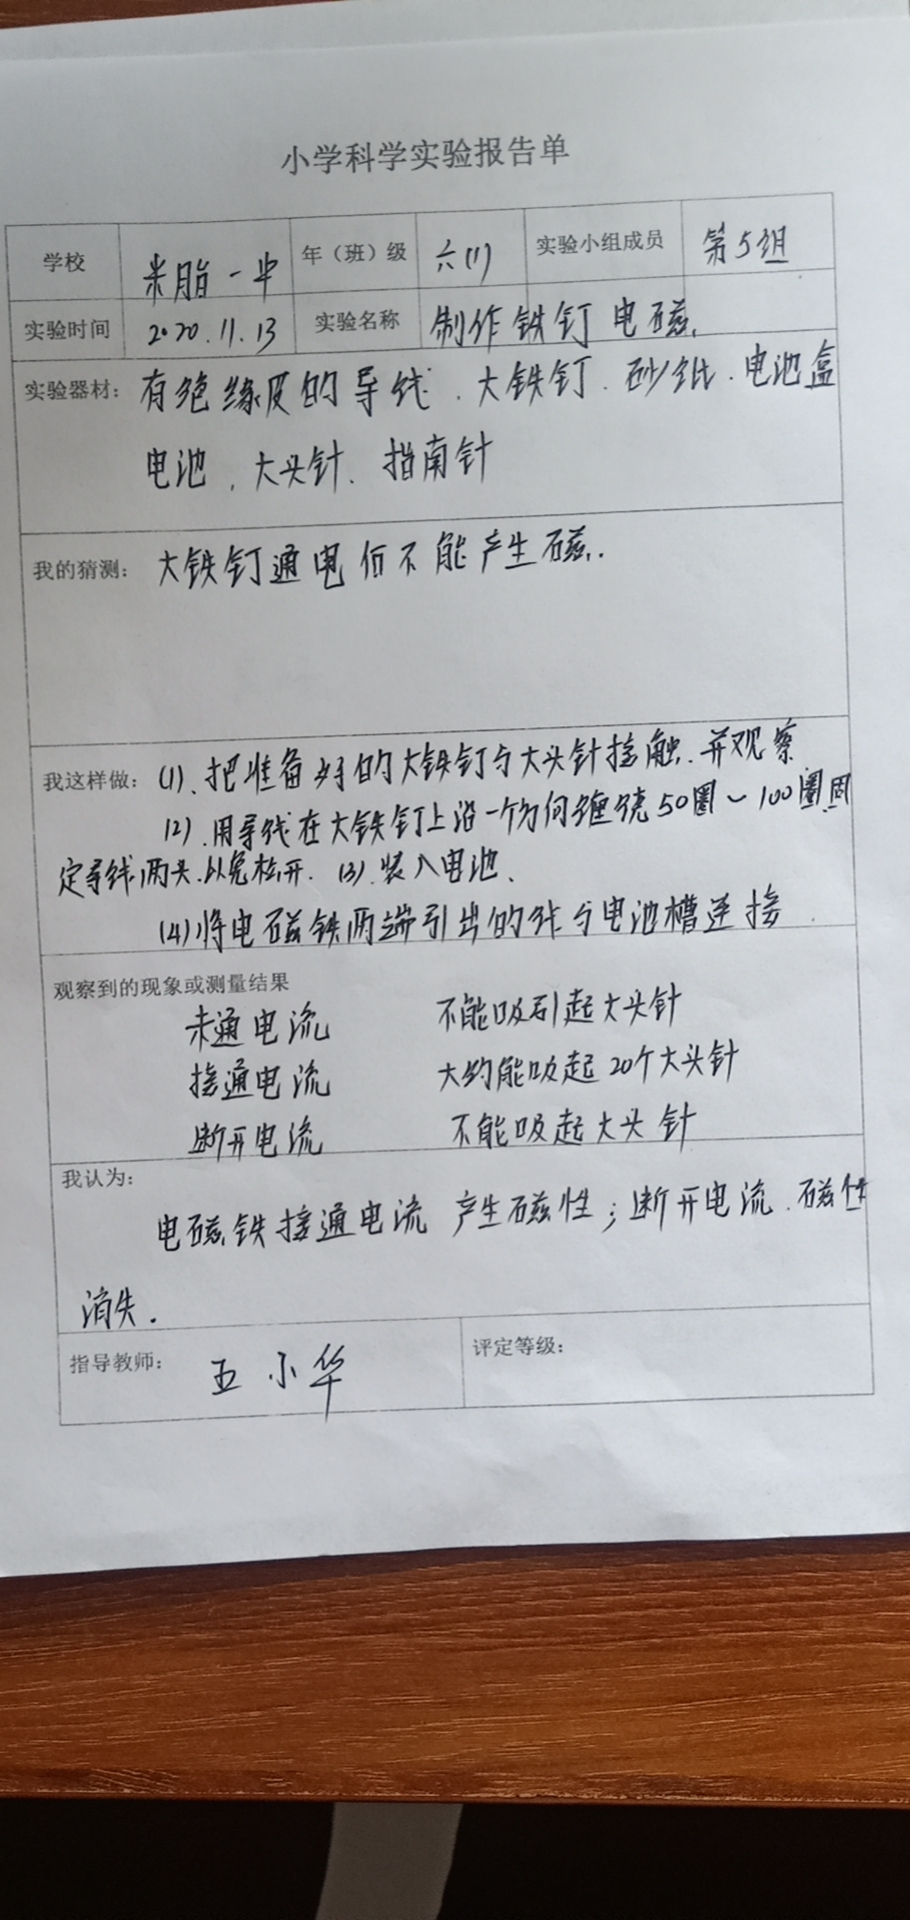 小学科学实验报告单
学校 米脂一中 年（班）级 六(1) 实验小组成员 第5组
实验时间 2020.11.13 实验名称 制作铁钉电磁
实验器材： 有绝缘皮的导线、大铁钉、砂纸、电池盒
电池、大头针、指南针
我的猜测： 大铁钉通电后不能产生磁.
我这样做： (1)、把准备好的大铁钉与大头针接触.并观察
(2)、用导线在大铁钉上沿一个方向缠绕50圈～100圈固
定导线两头.以免松开. (3)、装入电池、
(4)将电磁铁两端引出的线与电池槽连接.
观察到的现象或测量结果
未通电流 不能吸引起大头针
接通电流 大约能吸起20个大头针
断开电流 不能吸起大头针
我认为：
电磁铁接通电流 产生磁性；断开电流.磁性
消失.
指导教师： 小华 评定等级：